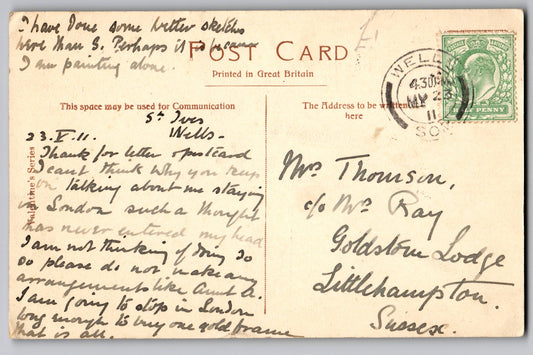 I have done some better sketches
here than S. Perhaps it is because
I am painting alone.
POST CARD
Printed in Great Britain
This space may be used for Communication
The Address to be written
here
Valentine's Series
St Ives
Wells.
23.V.11.
Thank for letter & postcard
I cant think why you keep
on talking about me staying
in London such a thought
has never entered my head
I am not thinking of doing so
so please do not make any
arrangements like Aunt A.
I am going to stop in London
long enough to buy one gold frame
that is all.
Mrs Thomson,
c/o Mrs Ray
Goldstom Lodge
Littlehampton.
Sussex.
WELLS
4.30PM
MY 23
11
SOM
PENNY
£1